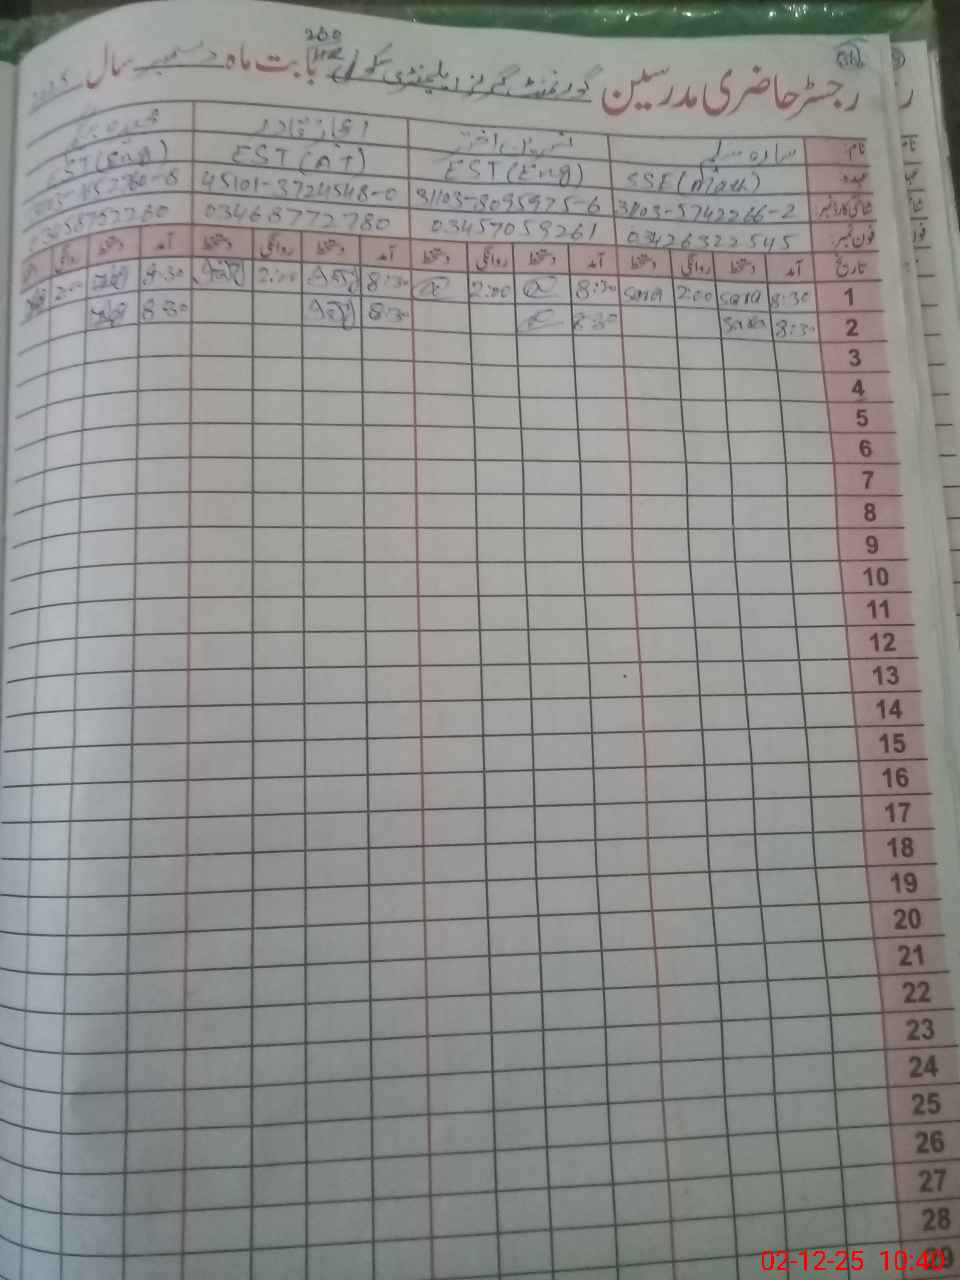 رجسٹر حاضری مدرسین گورنمنٹ گرلز ایلیمنٹری سکول 200 HR بابت ماہ دسمبر سال
نام سارہ سلیم
عہدہ SSE (Math) EST (Eng) EST (AT) EST (Eng)
شناختی کارڈ نمبر 31103-5742266-2 31103-8095975-6 45101-3724548-0
فون نمبر 03426322545 03457059261 03468772780 03458752260
تاریخ آمد دستخط روانگی دستخط آمد دستخط روانگی دستخط آمد دستخط روانگی دستخط آمد دستخط روانگی
1 8:30 sara 2:00 sara 8:30 2:00 8:30 2:00 8:30 2:00
2 8:30 sara 8:30 8:30 8:30
3
4
5
6
7
8
9
10
11
12
13
14
15
16
17
18
19
20
21
22
23
24
25
26
27
28
29
02-12-25 10:40